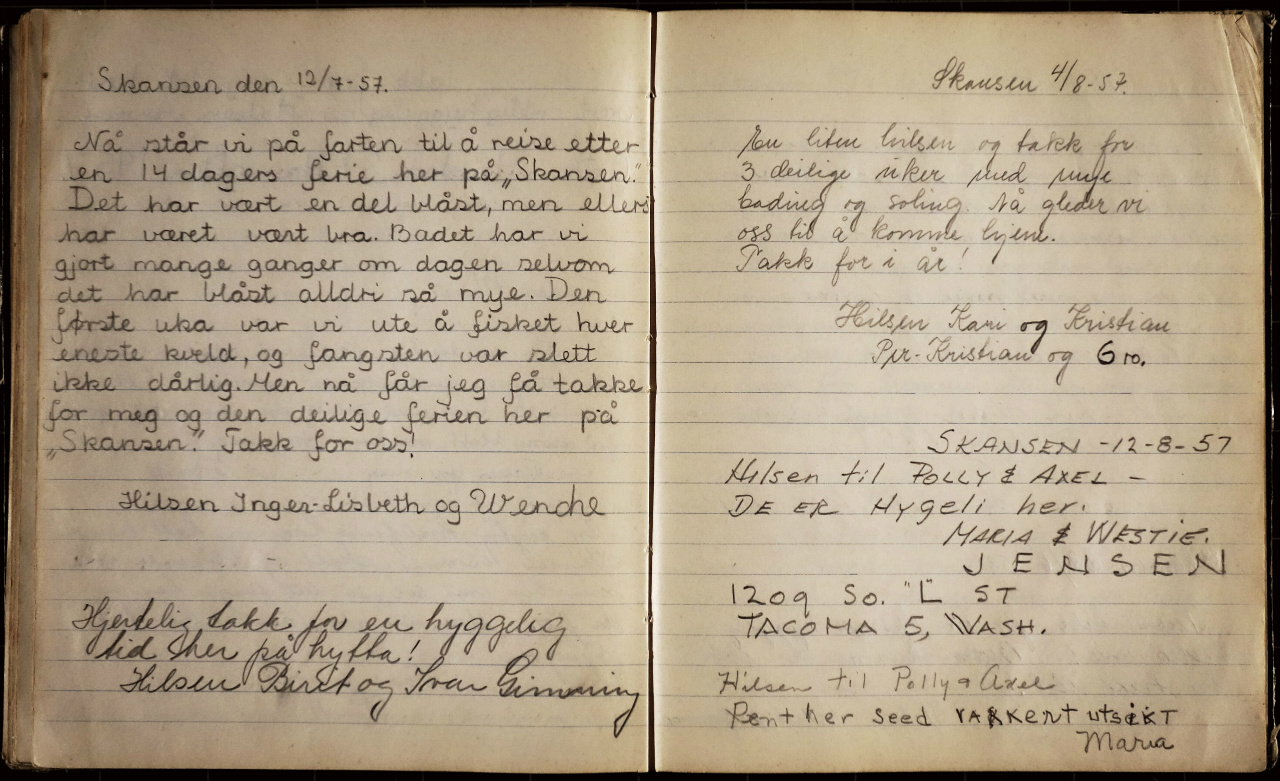 Skansen den 12/7-57.
Nå står vi på farten til å reise etter
en 14 dagers ferie her på „Skansen."
Det har vært en del blåst, men ellers
har været vært bra. Badet har vi
gjort mange ganger om dagen selvom
det har blåst alldri så mye. Den
første uka var vi ute å fisket hver
eneste kveld, og fangsten var slett
ikke dårlig. Men nå får jeg få takke
for meg og den deilige ferien her på
„Skansen." Takk for oss!
Hilsen Inger-Lisbeth og Wenche
Hjertelig takk for en hyggelig
tid her på hytta!
Hilsen Birit og Ivar
Skansen 4/8-57.
En liten hilsen og takk for
3 deilige uker med mye
bading og soling. Nå gleder vi
oss til å komme hjem.
Takk for i år!
Hilsen Kari og Kristian
Per-Kristian og Gro.
SKANSEN -12-8-57
Hilsen til POLLY & AXEL -
DE ER Hygeli her.
MARIA & WESTIE.
JENSEN
1209 So. "L" ST
TACOMA 5, WASH.
Hilsen til Polly & Axel
Pent her seed VAKKERT utsikt
Maria